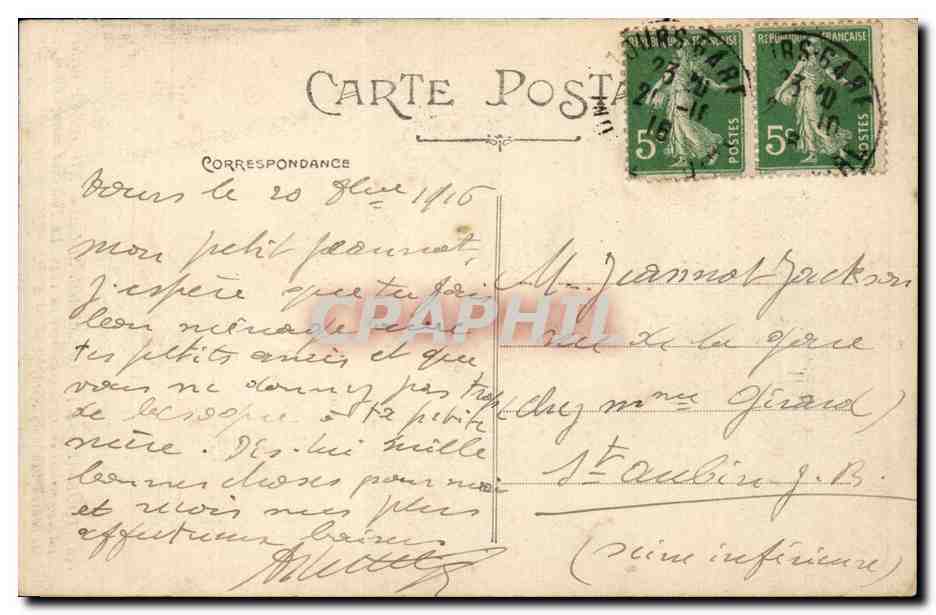 CARTE POSTA
RÉPUBLIQUE FRANÇAISE
5c
POSTES
RÉPUBLIQUE FRANÇAISE
5c
POSTES
TOURS-GARE
CORRESPONDANCE
Tours le 20 8bre 1916
Mon petit Jeannot,
J'espère que tu fais
bon ménage avec
tes petits amis et que
vous ne donnez pas trop
de besogne à ta petite
mère. Dis-lui mille
bonnes choses pour moi
et reçois mes plus
affectueux baisers
CPAPHIL
M. Jeannot Jackson
rue de la gare
(chez Mme Girard)
St Aubin J. B.
(Seine inférieure)